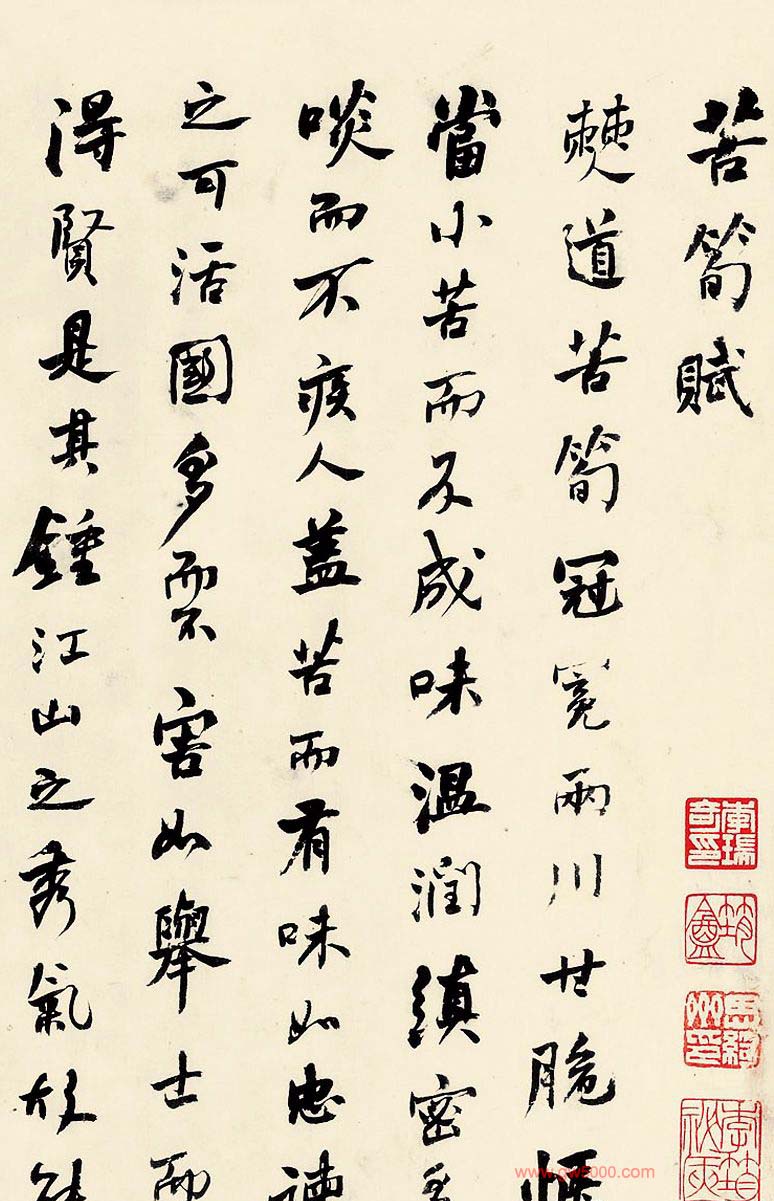 苦筍賦
僰道苦筍冠冕兩川甘脆愜
當小苦而反成味溫潤縝密多
啖而不疾人蓋苦而有味如忠諫
之可活國多而不害如舉士而
得賢是其鍾江山之秀氣故能